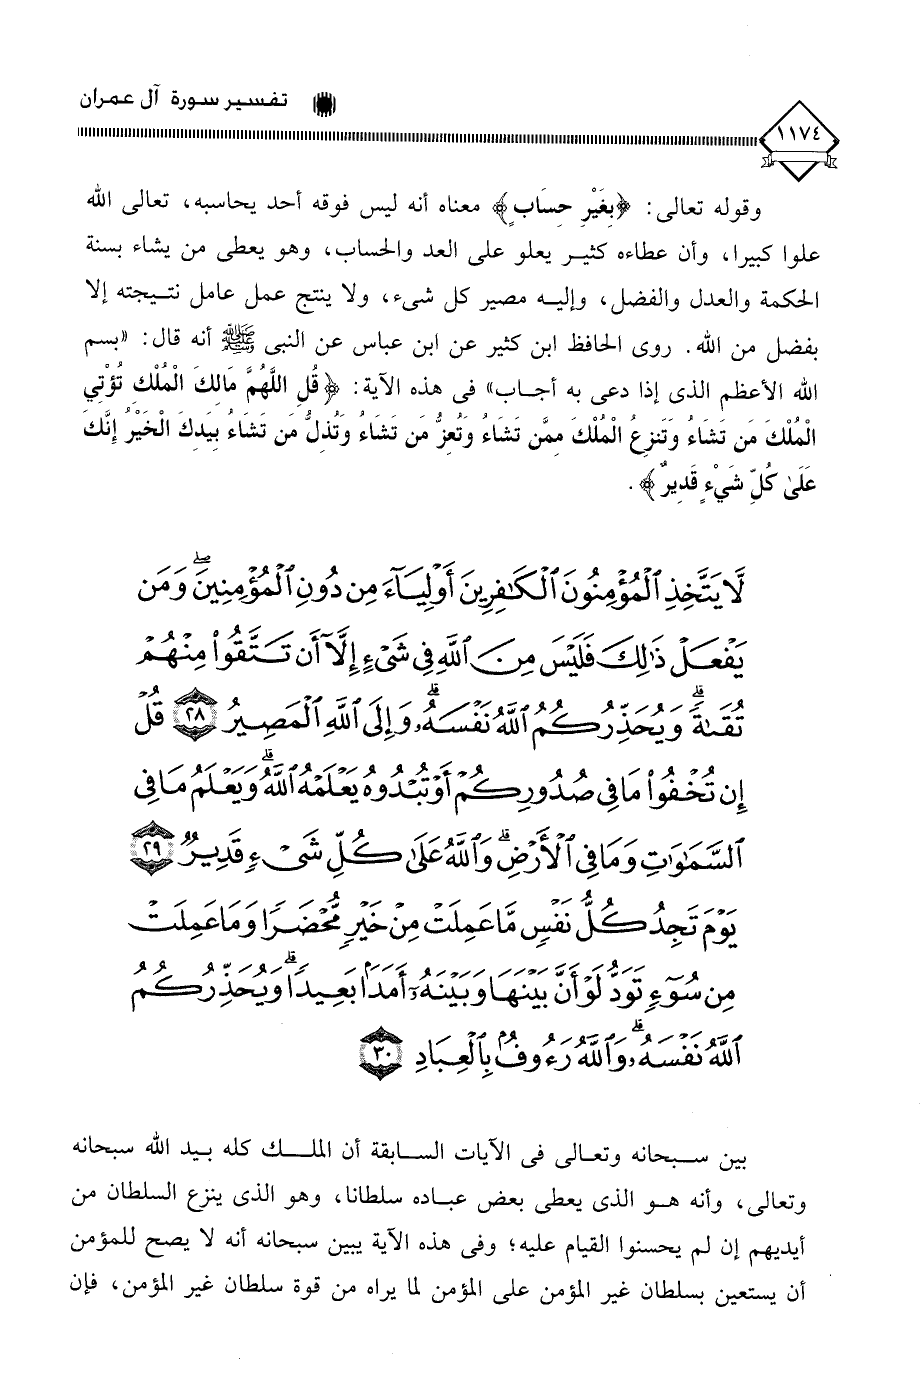 تفسير سورة آل عمران
١١٧٤
وقوله تعالى: ﴿بِغَيْرِ حِسَابٍ﴾ معناه أنه ليس فوقه أحد يحاسبه، تعالى الله
علوا كبيرا، وأن عطاءه كثير يعلو على العد والحساب، وهو يعطى من يشاء بسنة
الحكمة والعدل والفضل، وإليه مصير كل شىء، ولا ينتج عمل عامل نتيجته إلا
بفضل من الله. روى الحافظ ابن كثير عن ابن عباس عن النبى ﷺ أنه قال: «بسم
الله الأعظم الذى إذا دعى به أجاب» فى هذه الآية: ﴿قُلِ اللَّهُمَّ مَالِكَ الْمُلْكِ تُؤْتِي
الْمُلْكَ مَن تَشَاءُ وَتَنزِعُ الْمُلْكَ مِمَّن تَشَاءُ وَتُعِزُّ مَن تَشَاءُ وَتُذِلُّ مَن تَشَاءُ بِيَدِكَ الْخَيْرُ إِنَّكَ
عَلَىٰ كُلِّ شَيْءٍ قَدِيرٌ﴾.
لَّا يَتَّخِذِ ٱلْمُؤْمِنُونَ ٱلْكَٰفِرِينَ أَوْلِيَآءَ مِن دُونِ ٱلْمُؤْمِنِينَ ۖ وَمَن
يَفْعَلْ ذَٰلِكَ فَلَيْسَ مِنَ ٱللَّهِ فِى شَىْءٍ إِلَّآ أَن تَتَّقُوا۟ مِنْهُمْ
تُقَىٰةً ۗ وَيُحَذِّرُكُمُ ٱللَّهُ نَفْسَهُۥ ۗ وَإِلَى ٱللَّهِ ٱلْمَصِيرُ ٢٨ قُلْ
إِن تُخْفُوا۟ مَا فِى صُدُورِكُمْ أَوْ تُبْدُوهُ يَعْلَمْهُ ٱللَّهُ ۗ وَيَعْلَمُ مَا فِى
ٱلسَّمَٰوَٰتِ وَمَا فِى ٱلْأَرْضِ ۗ وَٱللَّهُ عَلَىٰ كُلِّ شَىْءٍ قَدِيرٌ ٢٩
يَوْمَ تَجِدُ كُلُّ نَفْسٍ مَّا عَمِلَتْ مِنْ خَيْرٍ مُّحْضَرًا وَمَا عَمِلَتْ
مِن سُوٓءٍ تَوَدُّ لَوْ أَنَّ بَيْنَهَا وَبَيْنَهُۥٓ أَمَدًۢا بَعِيدًا ۗ وَيُحَذِّرُكُمُ
ٱللَّهُ نَفْسَهُۥ ۗ وَٱللَّهُ رَءُوفٌۢ بِٱلْعِبَادِ ٣٠
بين سبحانه وتعالى فى الآيات السابقة أن الملك كله بيد الله سبحانه
وتعالى، وأنه هو الذى يعطى بعض عباده سلطانا، وهو الذى ينزع السلطان من
أيديهم إن لم يحسنوا القيام عليه؛ وفى هذه الآية يبين سبحانه أنه لا يصح للمؤمن
أن يستعين بسلطان غير المؤمن على المؤمن لما يراه من قوة سلطان غير المؤمن، فإن